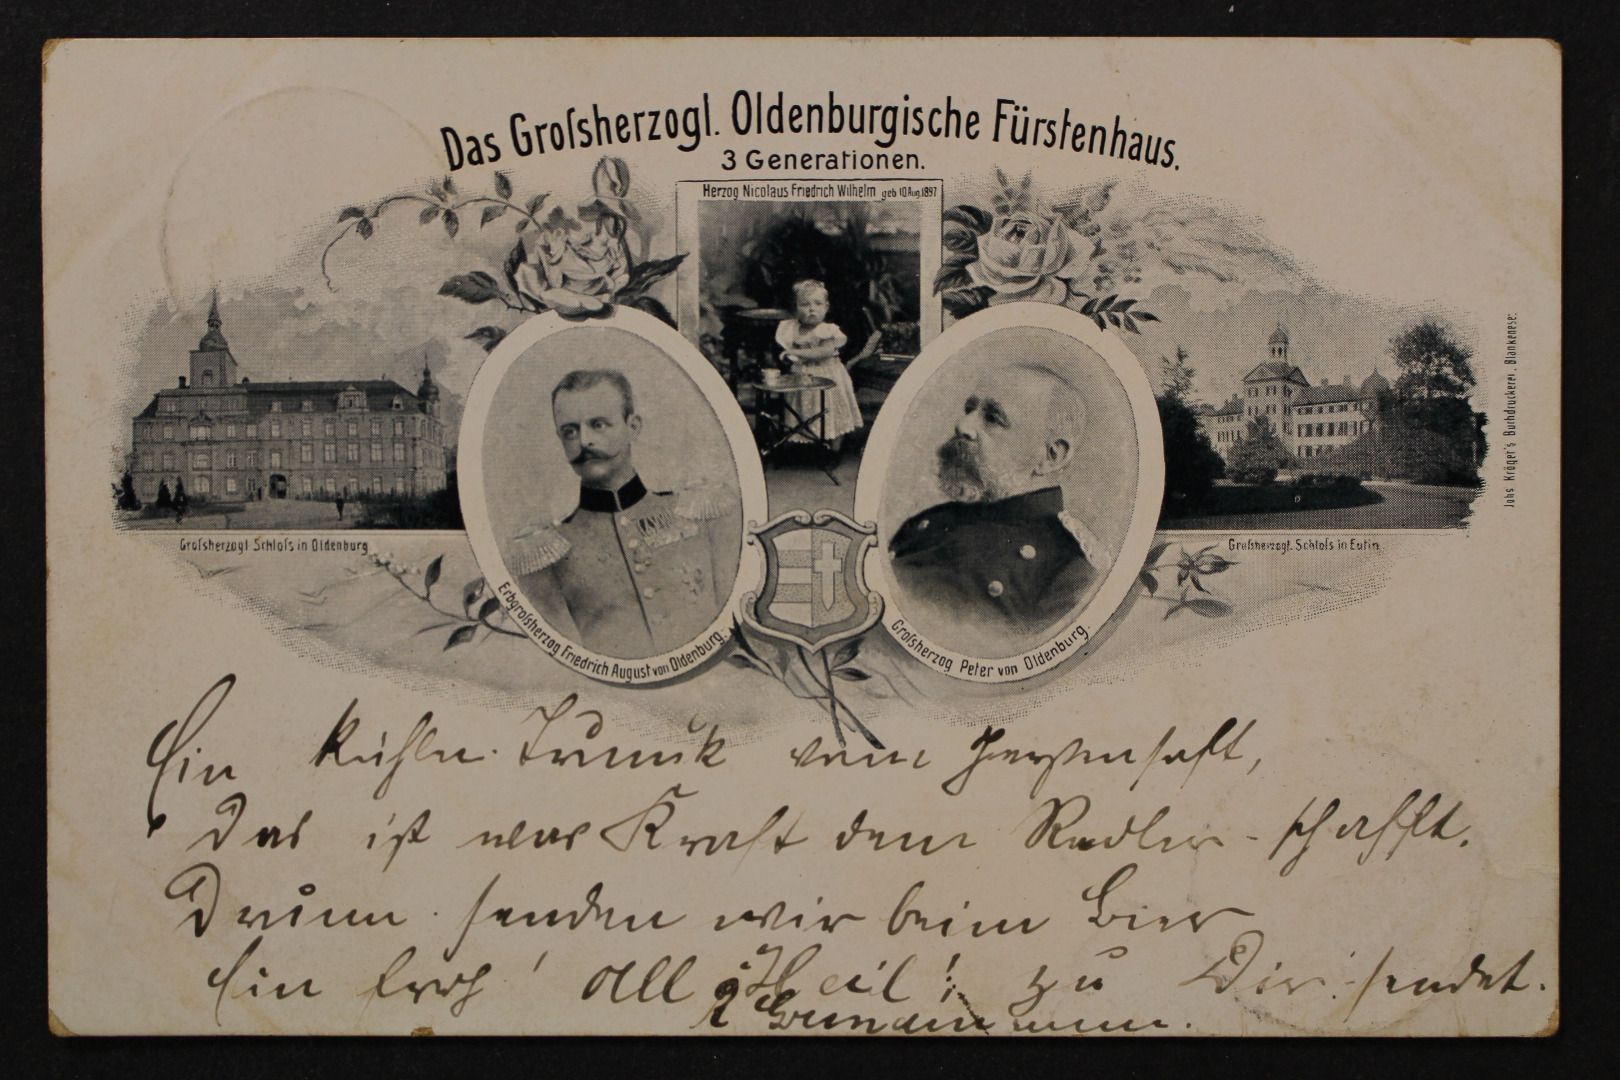 Das Groſsherzogl. Oldenburgische Fürstenhaus.
3 Generationen.
Herzog Nicolaus Friedrich Wilhelm geb 10 Aug. 1897
Groſsherzogl Schloſs in Oldenburg
Erbgroſsherzog Friedrich August von Oldenburg.
Groſsherzog Peter von Oldenburg.
Groſsherzogl. Schloſs in Eutin
Johs Kröger's Buchdruckerei, Blankenese.
Ein kühler Trunk vom Gerstensaft,
Das ist was Kraft dem Radler schafft.
Drum senden wir beim Bier
Ein froh' All Heil! zu Dir